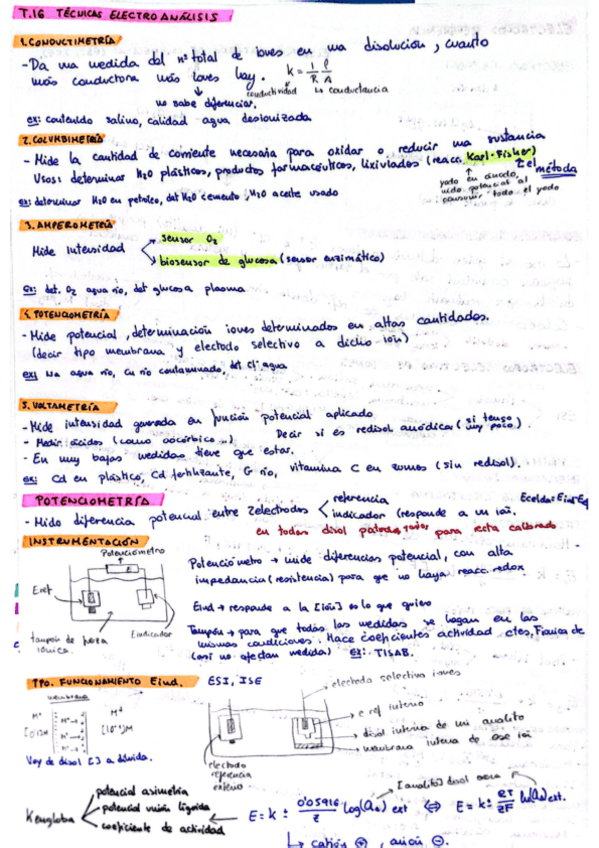 T.16 TÉCNICAS ELECTROANÁLISIS
1. CONDUCTIMETRÍA
- Da una medida del nº total de iones en una disolución, cuanto
más conductora más iones hay. k = 1/R ρ/A
conductividad ↳ conductancia
no sabe diferenciar.
ex: contenido salino, calidad agua desionizada
2. COLUMBIMETRÍA
- Mide la cantidad de corriente necesaria para oxidar o reducir una sustancia
Usos: determinar H2O plásticos, productos farmacéuticos, lixiviados (reacc. Karl-Fisher)
↳ el método
yodo en ánodo,
mido potencial al
consumir todo el yodo
ex: determinar H2O en petroleo, det H2O cemento, H2O aceite usado
3. AMPEROMETRÍA
Mide intensidad
sensor O2
biosensor de glucosa (sensor enzimático)
ex: det. O2 agua río, det glucosa plasma
4. POTENCIOMETRÍA
- Mide potencial, determinación iones determinados en altas cantidades.
(decir tipo membrana y electrodo selectivo a dicho ión)
ex: Na agua río, Cu río contaminado, det Cl⁻ agua
5. VOLTAMETRÍA
- Mide intensidad generada en función potencial aplicado
- Medir ácidos (como ascórbico...) Decir si es redisol anódica (si tengo muy poco).
- En muy bajas medidas tiene que estar.
ex: Cd en plástico, Cd fertilizante, río, vitamina C en zumos (sin redisol).
POTENCIOMETRÍA
- Mido diferencia potencial entre 2 electrodos
referencia
indicador (responde a un ión.
Ecelda=Eind-E
en todas disol para esta calibrado
INSTRUMENTACIÓN
Potenciómetro
Eref
Eindicador
tampón de fuerza
iónica.
Potenciómetro → mide diferencias potencial, con alta
impedancia (resistencia) para que no haya reacc. redox
Eind → responde a la [ión] es lo que quiero
Tampón → para que todas las medidas se hagan en las
mismas condiciones. Hace coeficientes actividad ctes, F iónica cte
(así no afectan medida) ex: TISAB.
TPO. FUNCIONAMIENTO Eind. ESI, ISE
membrana
M⁺ M⁺
[0'1]M [10⁻]M
Voy de disol [] a diluida.
electrodo selectivo iones
e ref interno
disol interna de mi analito
membrana interna de ese ión
electrodo
referencia
externo
K engloba
potencial asimetría
potencial unión líquida
coeficiente de actividad
[analito] disol
E = k ± 0'05916/z log(a) ext ⇔ E = k ± RT/zF ln(a) ext.
↳ catión ⊕, anión ⊖.